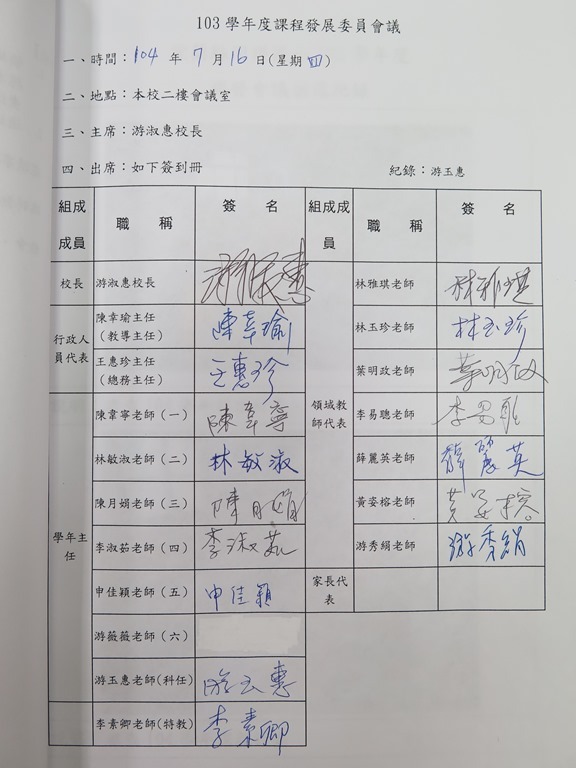 103 學年度課程發展委員會議
一、時間：104 年 7 月 16 日(星期 四)
二、地點：本校二樓會議室
三、主席：游淑惠校長
四、出席：如下簽到冊 紀錄：游玉惠
組成成員 職 稱 簽 名 組成成員 職 稱 簽 名
校長 游淑惠校長 游淑惠 領域教師代表 林雅琪老師 林雅琪
行政人員代表 陳幸瑜主任（教導主任） 陳幸瑜 林玉珍老師 林玉珍
王惠珍主任（總務主任） 王惠珍 葉明政老師 葉明政
學年主任 陳韋寧老師（一） 陳韋寧 李易聰老師
林敏淑老師（二） 林敏淑 薛麗英老師 薛麗英
陳月娟老師（三） 陳月娟 黃姿榕老師 黃姿榕
李淑茹老師（四） 李淑茹 游秀絹老師 游秀絹
申佳穎老師（五） 申佳穎 家長代表
游薇薇老師（六）
游玉惠老師(科任) 游玉惠
李素卿老師(特教) 李素卿